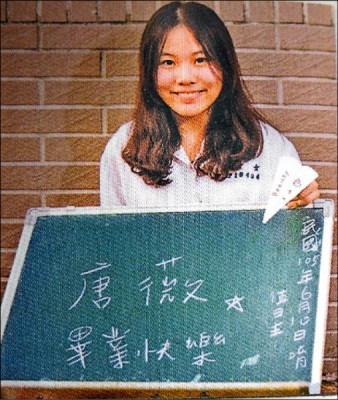 Beauty
唐薇
畢業快樂
民國105年6月 日唷
值日生